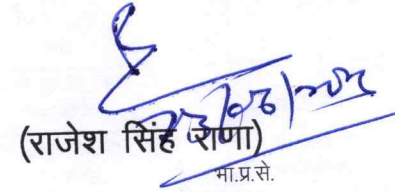 (राजेश सिंह राणा)
भा.प्र.से.